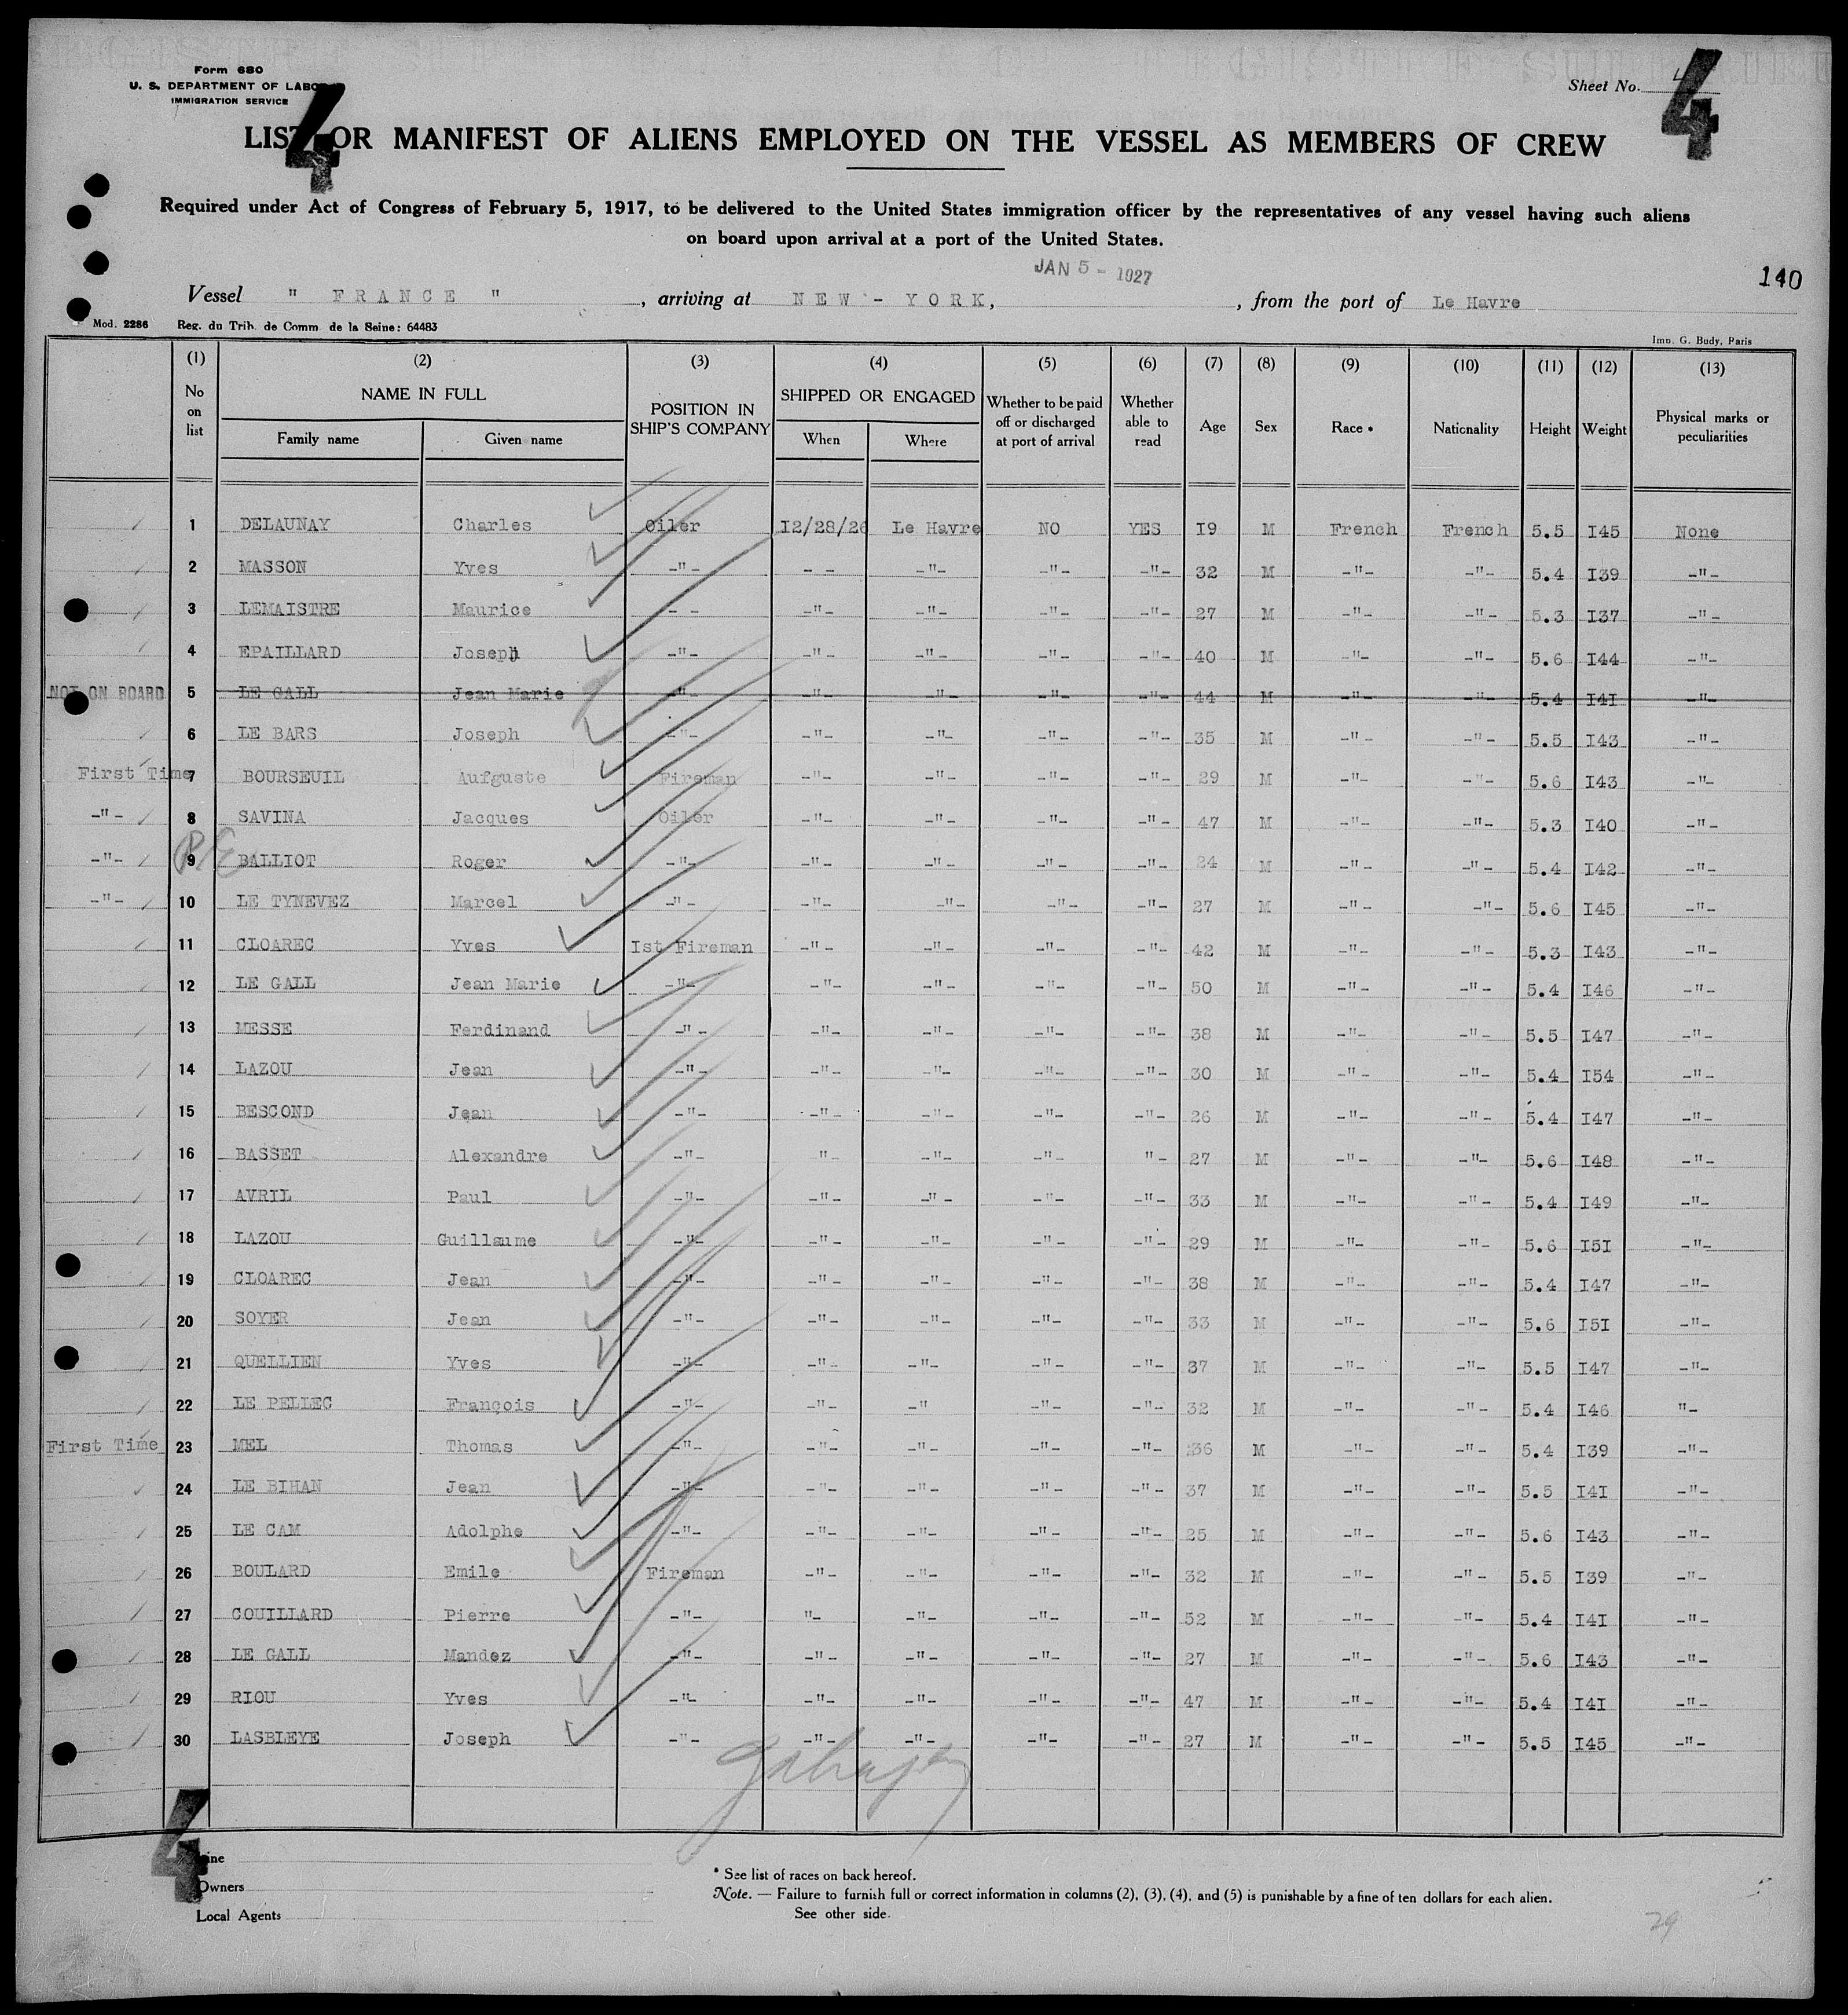 Form 680
U. S. DEPARTMENT OF LABO
IMMIGRATION SERVICE
Sheet No. 4
4
4
LIST OR MANIFEST OF ALIENS EMPLOYED ON THE VESSEL AS MEMBERS OF CREW
Required under Act of Congress of February 5, 1917, to be delivered to the United States immigration officer by the representatives of any vessel having such aliens
on board upon arrival at a port of the United States.
JAN 5 - 1927
140
Vessel " FRANCE " , arriving at NEW - YORK, , from the port of Le Havre
Mod. 2286 Reg. du Trib. de Comm. de la Seine: 64483
Imp. G. Budy, Paris
(1) (2) (3) (4) (5) (6) (7) (8) (9) (10) (11) (12) (13)
No on list NAME IN FULL Family name Given name POSITION IN SHIP'S COMPANY SHIPPED OR ENGAGED When Where Whether to be paid off or discharged at port of arrival Whether able to read Age Sex Race * Nationality Height Weight Physical marks or peculiarities
1 DELAUNAY Charles Oiler I2/28/26 Le Havre NO YES I9 M French French 5.5 I45 None
2 MASSON Yves -"- - - -"- -"- -"- 32 M -"- -"- 5.4 I39 -"-
3 LEMAISTRE Maurice - - -"- -"- -"- -"- 27 M -"- -"- 5.3 I37 -"-
4 EPAILLARD Joseph -"- -"- -"- -"- -"- 40 M -"- -"- 5.6 I44 -"-
NOT ON BOARD 5 LE GALL Jean Marie -"- -"- -"- -"- -"- 44 M -"- -"- 5.4 I4I -"-
6 LE BARS Joseph -"- -"- -"- -"- -"- 35 M -"- -"- 5.5 I43 -"-
First Time 7 BOURSEUIL Aufguste Fireman -"- -"- -"- -"- 29 M -"- -"- 5.6 I43 -"-
-"- 8 SAVINA Jacques Oiler -"- -"- -"- -"- 47 M -"- -"- 5.3 I40 -"-
-"- 9 BALLIOT Roger -"- -"- -"- -"- -"- 24 M -"- -"- 5.4 I42 -"-
-"- 10 LE TYNEVEZ Marcel -"- -"- -"- -"- -"- 27 M -"- -"- 5.6 I45 -"-
11 CLOAREC Yves Ist Fireman -"- -"- -"- -"- 42 M -"- -"- 5.3 I43 -"-
12 LE GALL Jean Marie -"- -"- -"- -"- -"- 50 M -"- -"- 5.4 I46 -"-
13 MESSE Ferdinand -"- -"- -"- -"- -"- 38 M -"- -"- 5.5 I47 -"-
14 LAZOU Jean -"- -"- -"- -"- -"- 30 M -"- -"- 5.4 I54 -"-
15 BESCOND Jean -"- -"- -"- -"- -"- 26 M -"- -"- 5.4 I47 -"-
16 BASSET Alexandre -"- "- -"- -"- "- 27 M -"- -"- 5.6 I48 -"-
17 AVRIL Paul -"- -"- -"- -"- -"- 33 M -"- -"- 5.4 I49 -"-
18 LAZOU Guillaume -"- -"- -"- -"- -"- 29 M -"- -"- 5.6 I5I -"-
19 CLOAREC Jean -"- -"- -"- -"- -"- 38 M -"- -"- 5.4 I47 -"-
20 SOYER Jean -"- -"- -"- -"- -"- 33 M -"- -"- 5.6 I5I -"-
21 QUELLIEN Yves -"- -"- -"- -"- -"- 37 M -"- -"- 5.5 I47 -"-
22 LE PELLEC François -"- -"- -" -"- -"- 32 M -"- -"- 5.4 I46 "-
First Time 23 MEL Thomas -"- -"- -"- -"- -"- 36 M -"- -"- 5.4 I39 -"-
24 LE BIHAN Jean -"- -"- -"- -"- -"- 37 M -"- -"- 5.5 I4I -"-
25 LE CAM Adolphe -"- -"- -"- -"- -"- 25 M -"- -"- 5.6 I43 -"-
26 BOULARD Emile Fireman -"- -"- -"- -"- 32 M -"- -"- 5.5 I39 -"-
27 COUILLARD Pierre -"- "- -"- -"- -"- 52 M -"- -"- 5.4 I4I -"-
28 LE GALL Mandez -"- -"- -"- -"- -"- 27 M -"- -"- 5.6 I43 -"-
29 RIOU Yves -"- -"- -"- -"- -"- 47 M -"- -"- 5.4 I4I -"-
30 LASBLEYE Joseph -"- -"- -"- -"- -"- 27 M -"- -"- 5.5 I45 -"-
4
ine
Owners
Local Agents
* See list of races on back hereof.
Note. — Failure to furnish full or correct information in columns (2), (3), (4), and (5) is punishable by a fine of ten dollars for each alien.
See other side.
29